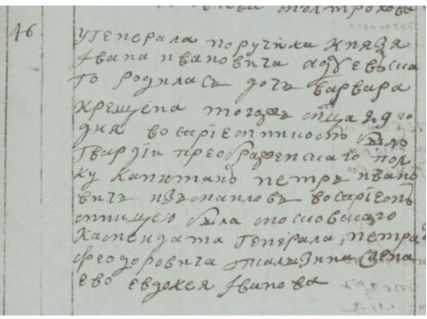 46
У генерала поручика князя
Ивана Ивановича
го родилась дочь варвара
крещена тогожъ мца 29 го
дня восприемникомъ былъ
гвардіи преображенскаго пол
ку капитанъ петръ ивано
вичъ измаиловъ восприем
ницею была московскаго
каменданта генерала петра
феодоровича жена
ево евдокея Иванова